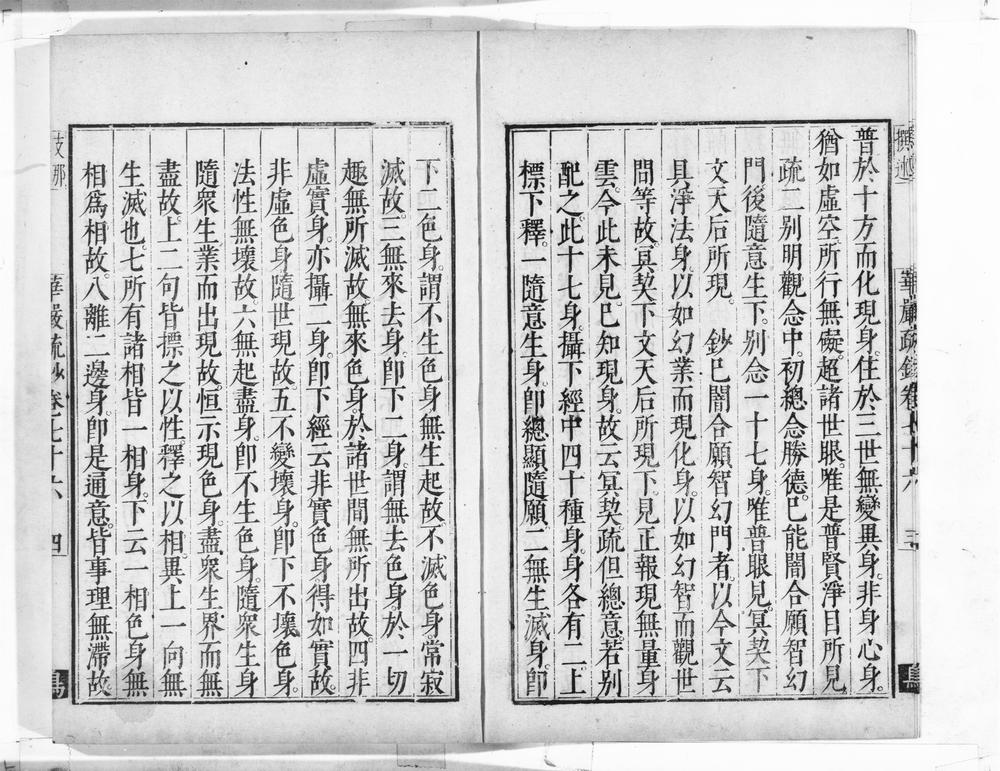 撰述
華嚴疏鈔卷七十六
三
普於十方而化現身。住於三世無變異身。非身心身。
猶如虛空所行無礙。超諸世眼。唯是普賢淨目所見
疏二別明觀念中。初總念勝德。巳能闇合願智幻
門後隨意生下。別念一十七身。唯普眼見。冥契下
文天后所現。 鈔巳闇合願智幻門者。以今文云
具淨法身。以如幻業而現化身。以如幻智而觀世
問等故。冥契下文天后所現下。見正報現無量身
雲。今此未見。巳知現身。故云冥契。疏但總意。若別
配之。此十七身。攝下經中四十種身。身各有二。上
標下釋。一隨意生身。卽總顯隨願。二無生滅身。卽
下二色身。謂不生色身無生起故。不滅色身。常寂
滅故。三無來去身。卽下二身。謂無去色身於一切
趣無所滅故。無來色身。於諸世間無所出故。四非
虛實身。亦攝二身。卽下經云非實色身得如實故。
非虛色身隨世現故。五不變壞身。卽下不壞色身。
法性無壞故。六無起盡身。卽不生色身。隨衆生身
隨衆生業而出現故。恒示現色身。盡衆生界而無
盡故。上二句皆標之以性。釋之以相。異上一向無
生滅也。七所有諸相皆一相身。下云一相色身無
相爲相故。八離二邊身。卽是通意。皆事理無滯故。
支那
華嚴疏鈔卷七十六
四